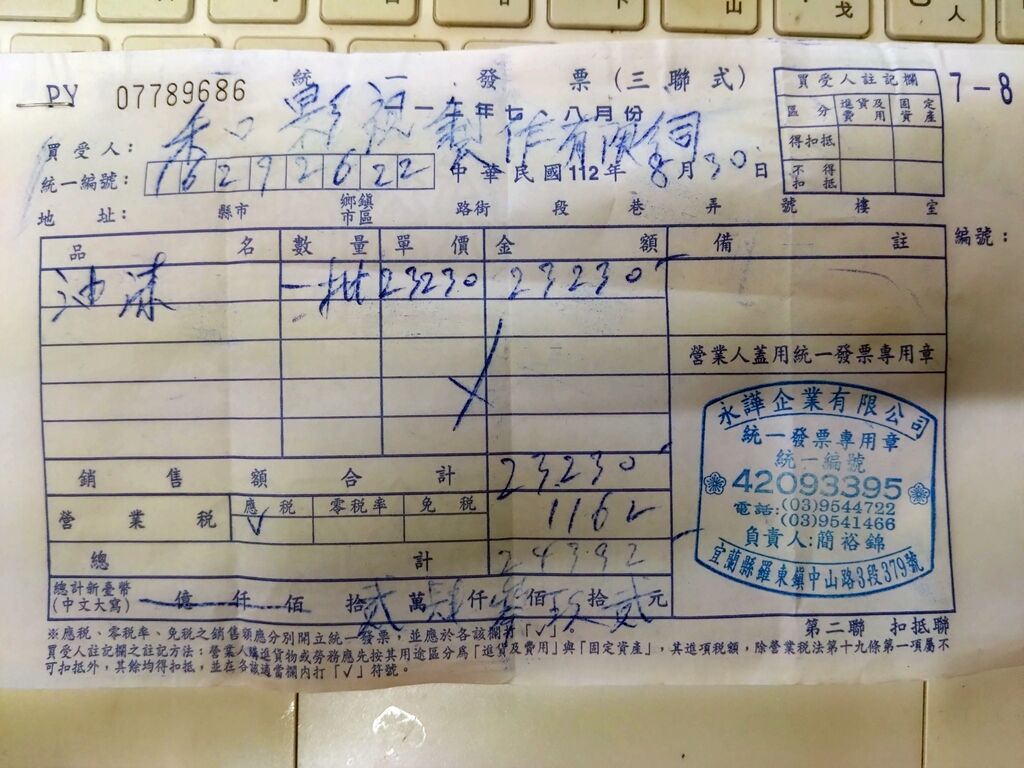 統一發票(三聯式)
PY 07789686
一一二年七、八月份
7-8
買受人:
影視製作有限公司
統一編號: 16292622
中華民國112年8月30日
地址: 縣市 鄉鎮市區 路街 段 巷 弄 號 樓 室
買受人註記欄
區分 進貨及費用 固定資產
得扣抵
不得扣抵
編號:
品名 數量 單價 金額 備註
油漆 一批 23230 23230
營業人蓋用統一發票專用章
銷售額合計 23230
營業稅 應稅 ✓ 零稅率 免稅 1162
總計 24392
總計新臺幣
(中文大寫) 億仟佰拾貳萬肆仟參佰玖拾貳元
永譁企業有限公司
統一發票專用章
統一編號
42093395
電話:(03)9544722
(03)9541466
負責人:簡裕錦
宜蘭縣羅東鎮中山路3段379號
第二聯 扣抵聯
※應稅、零稅率、免稅之銷售額應分別開立統一發票,並應於各該欄打「✓」。
買受人註記欄之註記方法:營業人購進貨物或勞務應先按其用途區分為「進貨及費用」與「固定資產」,其進項稅額,除營業稅法第十九條第一項屬不
可扣抵外,其餘均得扣抵,並在各該適當欄內打「✓」符號。